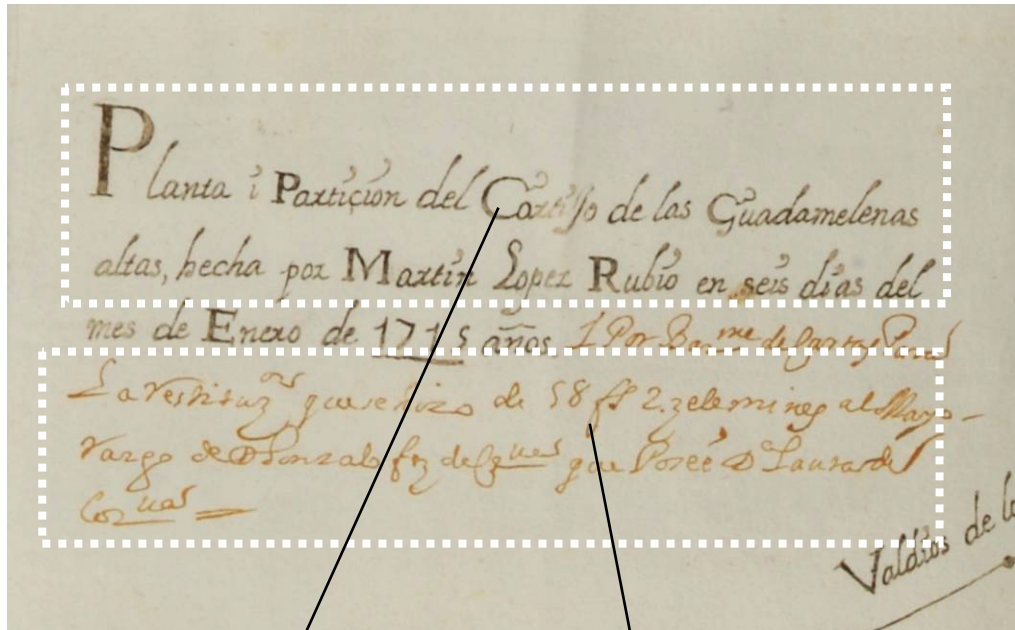 Planta i Partiçion del Cortijo de las Guadamelenas
altas, hecha por Martin Lopez Rubio en seis dias del
mes de Enero de 1715 años. I Por
La que se hizo de 58 ff 2. zelemines al Mayo-
razgo de Dn Gonzalo frz de que Posee Da Laura de

Valdios de